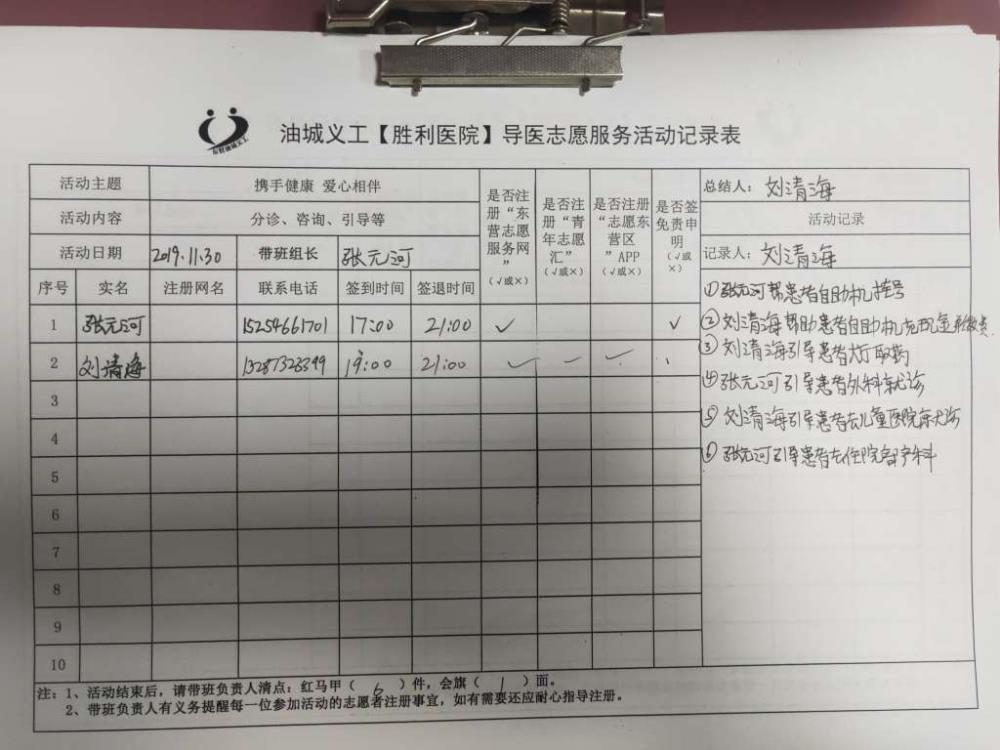 油城义工【胜利医院】导医志愿服务活动记录表
活动主题 携手健康 爱心相伴 是否注册“东营志愿服务网”(√或×) 是否注册“青年志愿汇”(√或×) 是否注册“志愿东营区”APP(√或×) 是否签免责申明(√或×) 总结人：刘清海
活动内容 分诊、咨询、引导等 活动记录
活动日期 2019.11.30 带班组长 张元河 记录人：刘清海
序号 实名 注册网名 联系电话 签到时间 签退时间
1 张元河 15254661701 17:00 21:00 √ √
2 刘清海 13287326399 19:00 21:00 √ — √
3
4
5
6
7
8
9
10
①张元河帮患者自助机挂号
②刘清海帮助患者自助机充现金
③刘清海引导患者大厅取药
④张元河引导患者外科就诊
⑤刘清海引导患者去儿童医院就诊
⑥张元河引导患者去住院部产科
注：1、活动结束后，请带班负责人清点：红马甲（ 6 ）件，会旗（ 1 ）面。
2、带班负责人有义务提醒每一位参加活动的志愿者注册事宜，如有需要还应耐心指导注册。